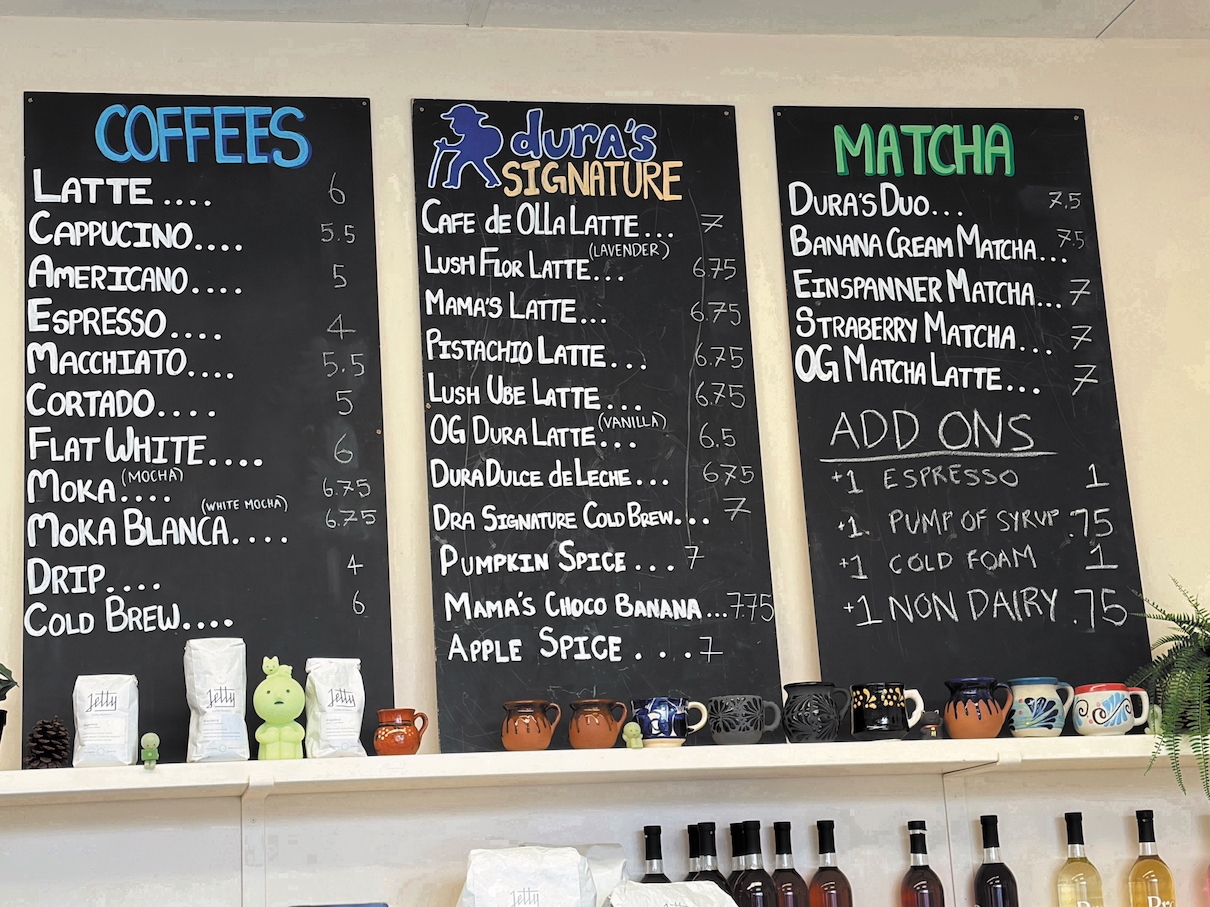 COFFEES
LATTE .... 6
CAPPUCINO.... 5.5
AMERICANO .... 5
ESPRESSO .... 4
MACCHIATO.... 5.5
CORTADO.... 5
FLAT WHITE.... 6
MOKA (MOCHA) .... 6.75
MOKA BLANCA (WHITE MOCHA) .... 6.75
DRIP.... 4
COLD BREW.... 6
dura's
SIGNATURE
CAFE de OLLA LATTE ... 7
LUSH FLOR LATTE (LAVENDER) ... 6.75
MAMA'S LATTE ... 6.75
PISTACHIO LATTE ... 6.75
LUSH UBE LATTE ... 6.75
OG DURA LATTE (VANILLA) ... 6.5
DURA DULCE de LECHE ... 6.75
DRA SIGNATURE COLD BREW... 7
PUMPKIN SPICE ... 7
MAMA'S CHOCO BANANA ... 7.75
APPLE SPICE ... . 7
MATCHA
DURA'S DUO... 7.5
BANANA CREAM MATCHA... 7.5
EINSPANNER MATCHA... 7
STRABERRY MATCHA... 7
OG MATCHA LATTE... 7
ADD ONS
+1 ESPRESSO 1
+1. PUMP OF SYRUP .75
+1 COLD FOAM 1
+1 NON DAIRY .75
Jetty
Jetty
Jetty
Jetty